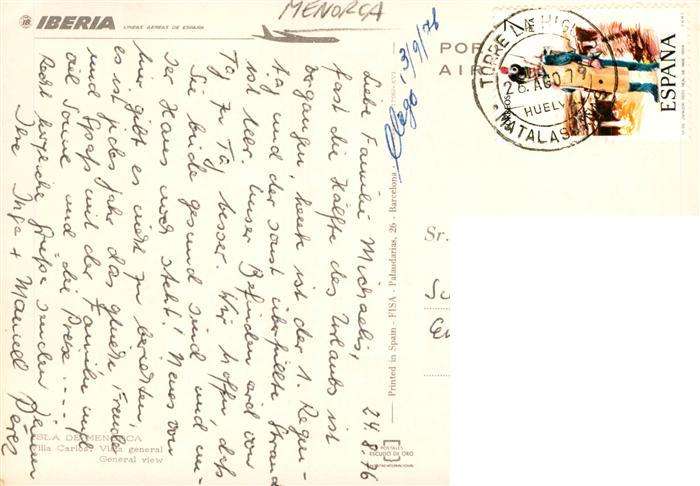 MENORCA
IBERIA
LINEAS AEREAS DE ESPAÑA
POR
AIR
TORRE LA HIG
26 AGO 79
HUELV
MATALAS
CORREOS
ESPAÑA
Llego 13/9/76
24.8.76
Liebe Familie Michaelis,
fast die Hälfte des Urlaubs ist
vergangen, heute ist der 1. Regen-
tag und der sonst überfüllte Strand
ist leer. Unser Befinden wird von
Tag zu Tag besser. Wir hoffen, daß
Sie beide gesund sind und un-
ser Haus noch steht! Neues von
hier gibt es nicht zu berichten,
es ist jedes Jahr das gleiche, Freude
und Spaß mit der Familie und
viel Sonne und die Preise ....
Recht herzliche Grüße senden Ihnen
Ihre Inga + Manuel Perez
ISLA DE MENORCA
Villa Carlos. Vista general
General view
Printed in Spain - FISA - Palaudarias, 26 - Barcelona
POSTALES
ESCUDO DE ORO
Sr.